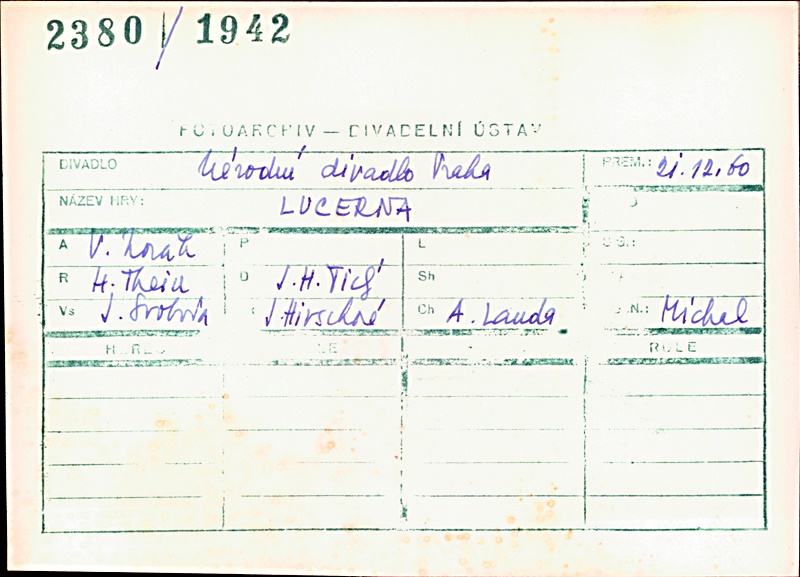 2380 / 1942
FOTOARCHIV — DIVADELNÍ ÚSTAV
DIVADLO Národní divadlo Praha PREM.: 21.12.60
NÁZEV HRY: LUCERNA
A V. Novák P L
R H. Thein D J.H. Tichý Sh
Vs J. Svoboda J. Hirschová Ch A. Landa N.: Michal
ROLE